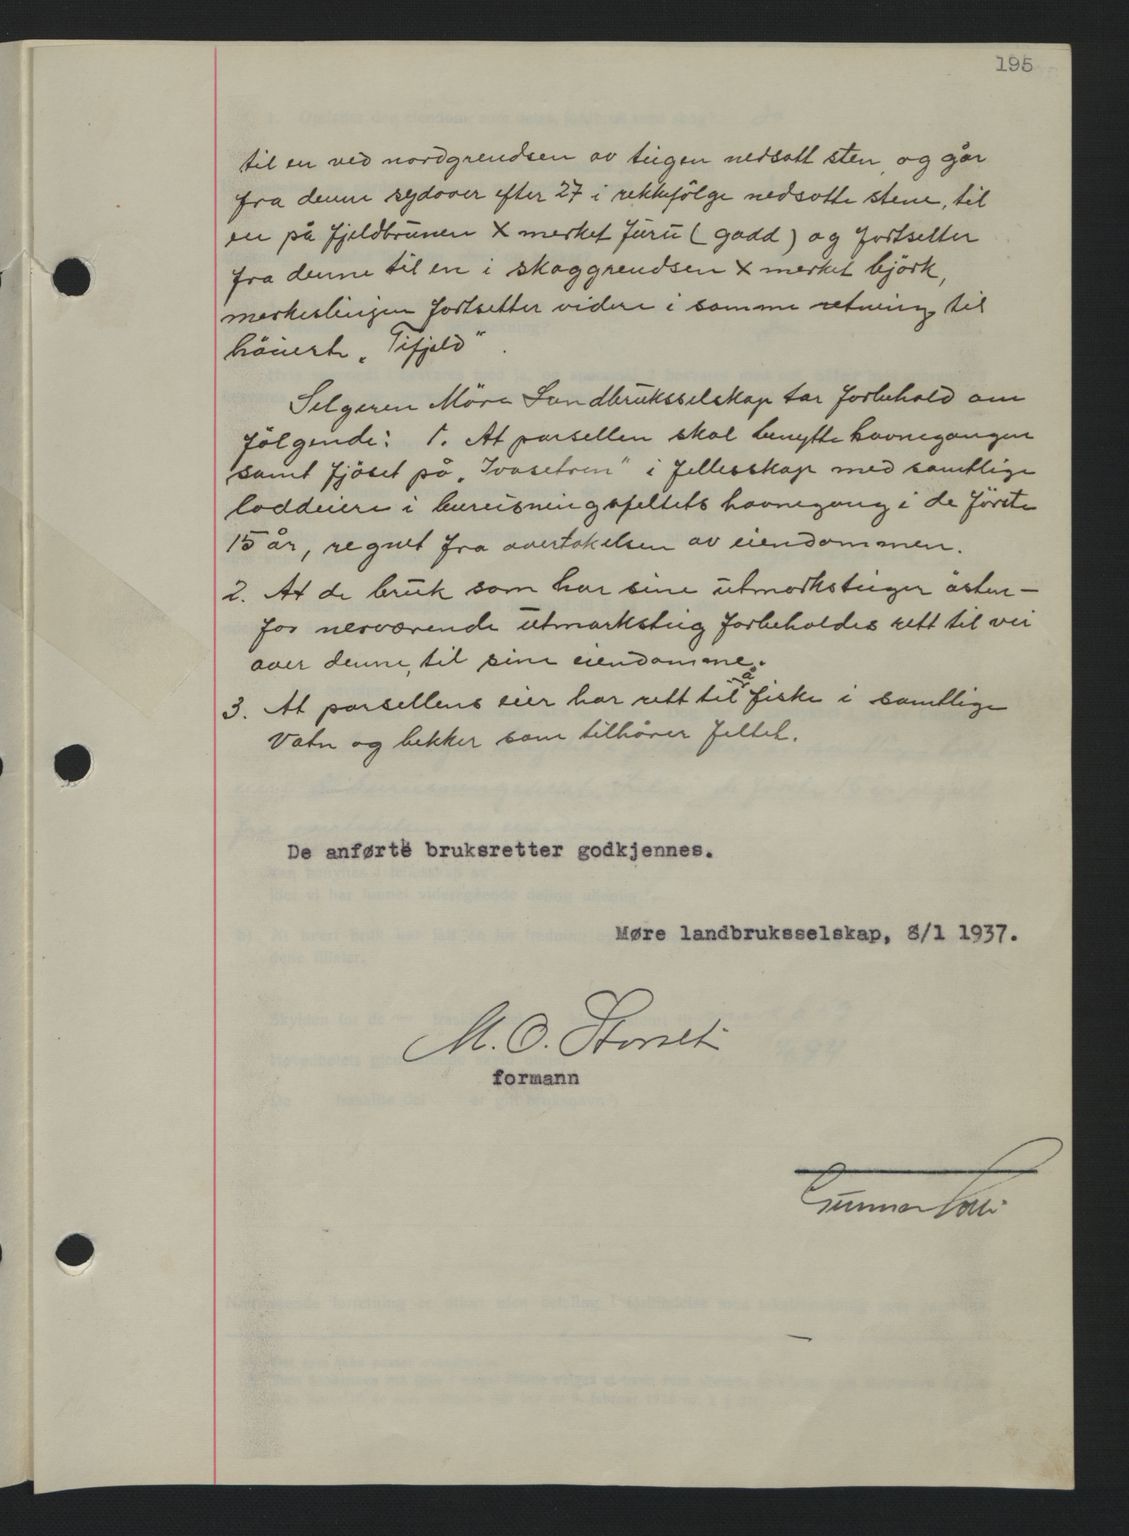 195
til en ved nordgrendsen av teigen nedsatt sten, og går
fra denne sydover efter 27 i rekkefölge nedsatte stene, til
en på fjeldbrunen X merket furu ( gadd ) og fortsetter
fra denne til en i skoggrendsen X merket björk,
merkeslinjen fortsetter videre i samme retning til
höieste „Tifjeld".
Selgeren Möre Landbruksselskap tar forbehold om
følgende: 1. At parsellen skal benytte havnegangen
samt fjöset på „Ivasetren" i fellesskap med samtlige
loddeiere i bureisningsfeltets havnegang i de förste
15 år, regnet fra overtakelsen av eiendommen.
2. At de bruk som har sine utmarksteiger östen-
for nerværende utmarksteig forbeholdes rett til vei
over denne, til sine eiendomme.
3. At parsellens eier har rett til å fiske i samtlige
Vatn og bekker som tilhörer feltet.
De anførte bruksretter godkjennes.
Møre landbruksselskap, 8/1 1937.
M. O. Storset
formann
Gunnar